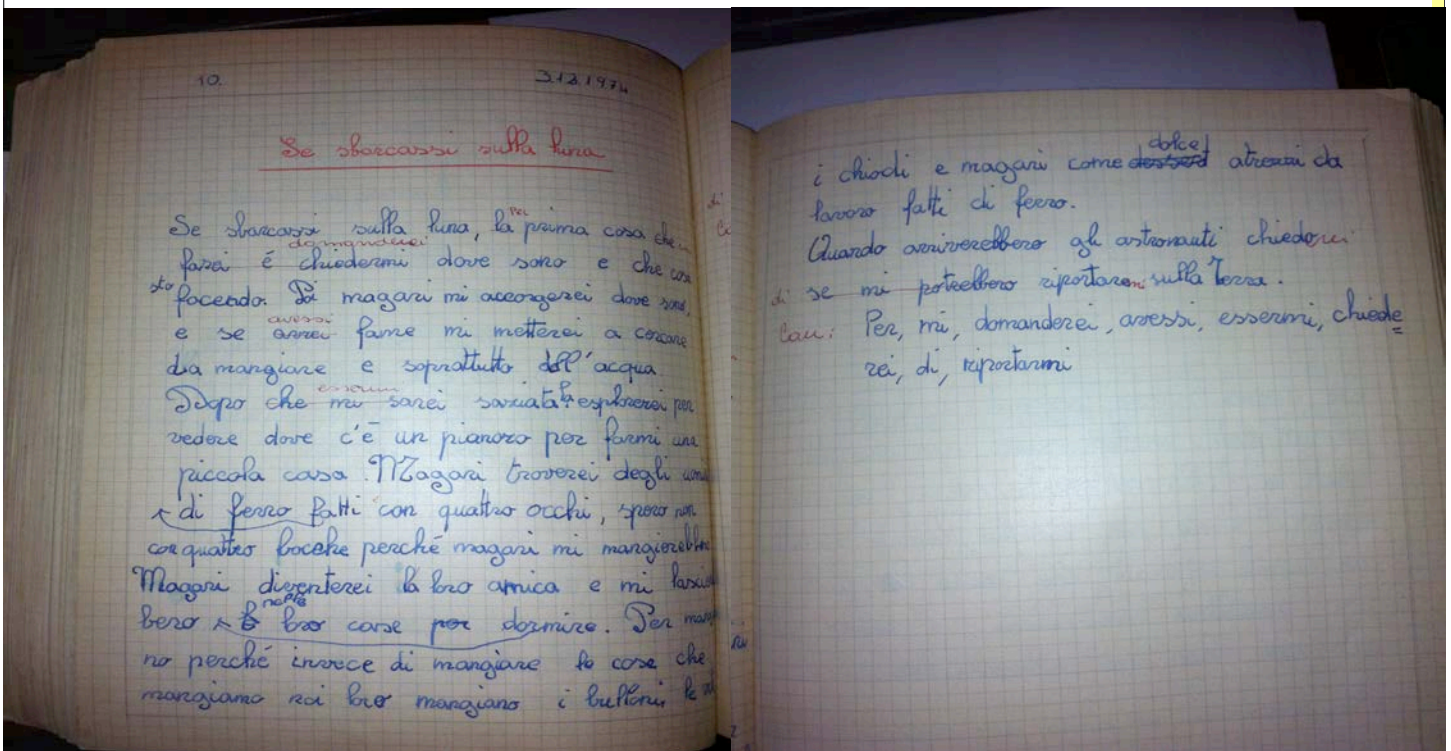 10. 3.12.1974
Se sbarcassi sulla luna
Se sbarcassi sulla luna, la per prima cosa che
domanderei
farei é chiedermi dove sono e che cosa
sto facendo. Poi magari mi accorgerei dove sono,
avessi
e se avrei fame mi metterei a cercare
da mangiare e soprattutto dell'acqua.
essermi
Dopo che mi sarei saziata la esplorerei per
vedere dove c'é un pianoro per farmi una
piccola casa. Magari troverei degli
di ferro fatti con quattro occhi, spero non
con quattro bocche perché magari mi
Magari diventerei la loro amica e mi
nelle
bero le loro case per dormire. Per
no perché invece di mangiare le cose che
mangiamo noi loro mangiano i bulloni le
dolce
i chiodi e magari come dessert atrezzi da
lavoro fatti di ferro.
Quando arriverebbero gli astronauti chiederei
di se mi potrebbero riportarmi sulla Terra.
Cau: Per, mi, domanderei, avessi, essermi, chiede
rei, di, riportarmi